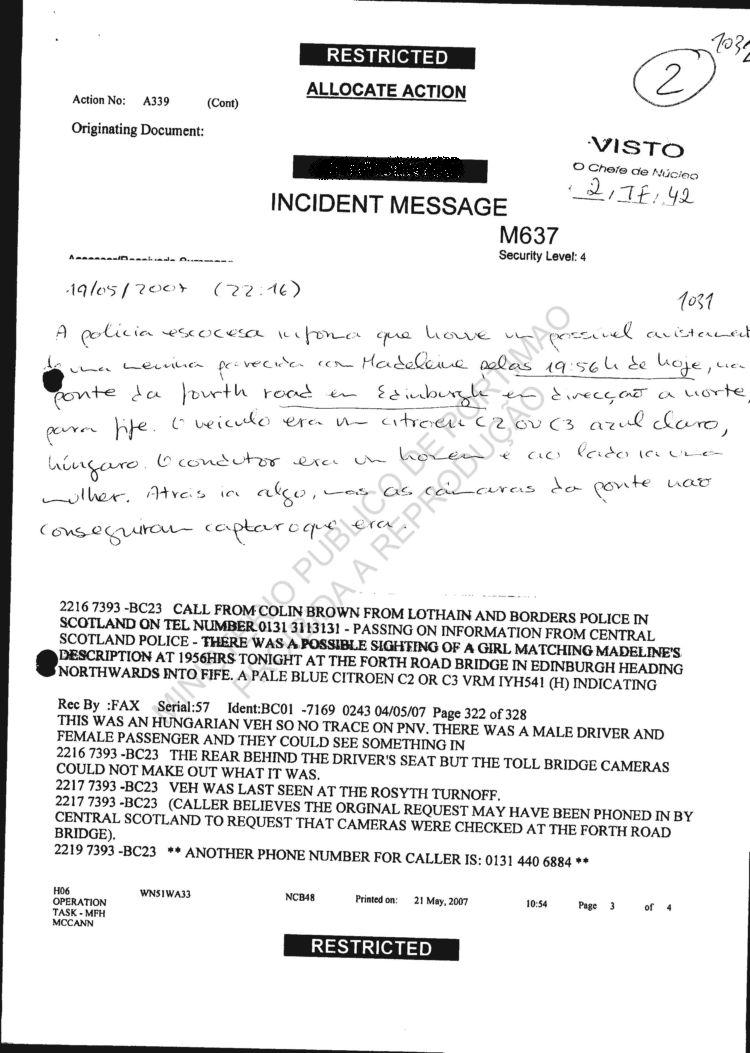 1032
RESTRICTED
2
ALLOCATE ACTION
Action No: A339 (Cont)
Originating Document:
VISTO
O Chefe de Núcleo
INCIDENT MESSAGE
M637
Security Level: 4
19/05/2007 (22:16)
1031
A policia escocesa informa que houve um possivel avistament
de uma menina parecida com Madeleine pelas 19:56h de hoje, na
ponte da fourth road em Edinburgh em direcção a norte,
para fife. O veiculo era um citroen C2 ou C3 azul claro,
húngaro. O condutor era um homem e ao lado ia uma
mulher. Atrás ia algo, mas as câmaras da ponte não
conseguiram captar o que era.
MINISTÉRIO PUBLICO DE PORTIMAO
PROIBIDA A REPRODUÇÃO
2216 7393 -BC23 CALL FROM COLIN BROWN FROM LOTHAIN AND BORDERS POLICE IN
SCOTLAND ON TEL NUMBER 0131 3113131 - PASSING ON INFORMATION FROM CENTRAL
SCOTLAND POLICE - THERE WAS A POSSIBLE SIGHTING OF A GIRL MATCHING MADELINE'S
DESCRIPTION AT 1956HRS TONIGHT AT THE FORTH ROAD BRIDGE IN EDINBURGH HEADING
NORTHWARDS INTO FIFE. A PALE BLUE CITROEN C2 OR C3 VRM IYH541 (H) INDICATING
Rec By :FAX Serial:57 Ident:BC01 -7169 0243 04/05/07 Page 322 of 328
THIS WAS AN HUNGARIAN VEH SO NO TRACE ON PNV. THERE WAS A MALE DRIVER AND
FEMALE PASSENGER AND THEY COULD SEE SOMETHING IN
2216 7393 -BC23 THE REAR BEHIND THE DRIVER'S SEAT BUT THE TOLL BRIDGE CAMERAS
COULD NOT MAKE OUT WHAT IT WAS.
2217 7393 -BC23 VEH WAS LAST SEEN AT THE ROSYTH TURNOFF.
2217 7393 -BC23 (CALLER BELIEVES THE ORGINAL REQUEST MAY HAVE BEEN PHONED IN BY
CENTRAL SCOTLAND TO REQUEST THAT CAMERAS WERE CHECKED AT THE FORTH ROAD
BRIDGE).
2219 7393 -BC23 ** ANOTHER PHONE NUMBER FOR CALLER IS: 0131 440 6884 **
H06 WN51WA33 NCB48 Printed on: 21 May, 2007 10:54 Page 3 of 4
OPERATION
TASK - MFH
MCCANN
RESTRICTED